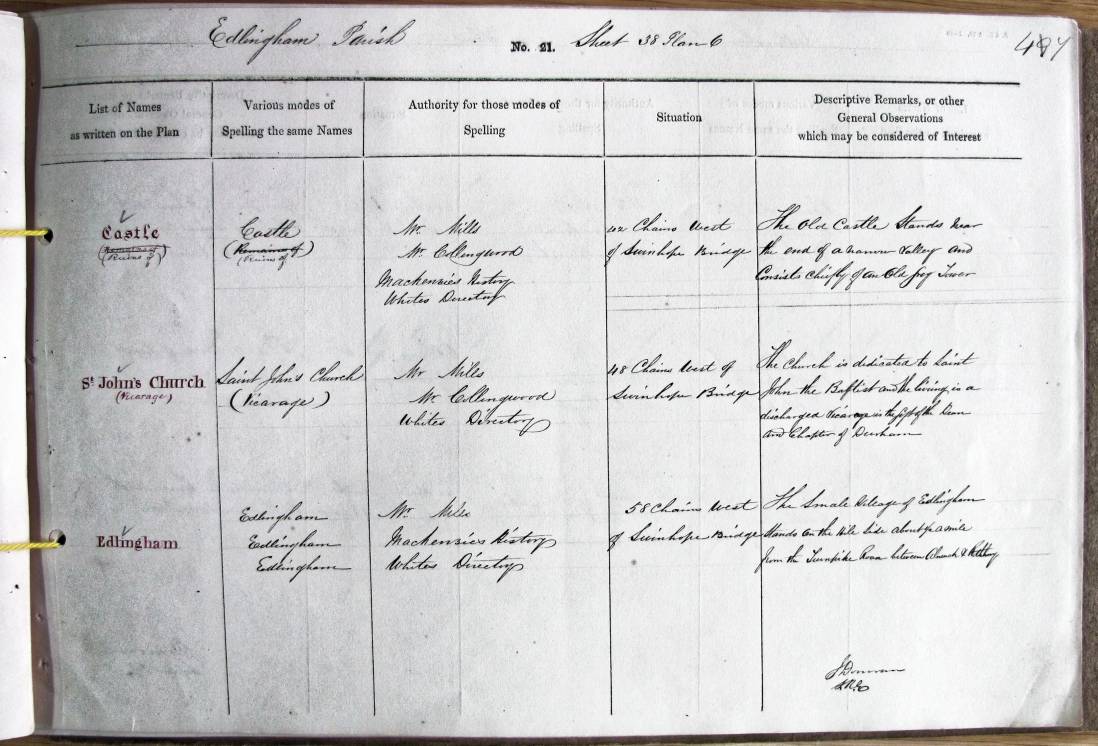 Edlingham Parish
No. 21. Sheet 38 Plan 6
List of Names
as written on the Plan
Various modes of
Spelling the same Names
Authority for those modes of
Spelling
Situation
Descriptive Remarks, or other
General Observations
which may be considered of Interest
Castle
(Remains of
Ruins of)
Castle
(Remains of
Ruins of)
Mr Mills
Mr Collingwood
Mackenzie's History
Whites Directory
42 Chains West
of Swinhope Bridge
The Old Castle Stands near
the end of a narrow Valley and
Consists chiefly of an Old Tower
St John's Church
(Vicarage)
Saint John's Church
(Vicarage)
Mr Mills
Mr Collingwood
Whites Directory
48 Chains West of
Swinhope Bridge
The Church is dedicated to Saint
John the Baptist and the living is a
discharged Vicarage in the gift of the Dean
and Chapter of Durham
Edlingham
Edlingham
Edlingham
Edlingham
Mr Mills
Mackenzie's History
Whites Directory
58 Chains West
of Swinhope Bridge
The Small Village of Edlingham
Stands on the Hill Side about a mile
from the Turnpike Road between Alnwick & Rothbury
J Donovan